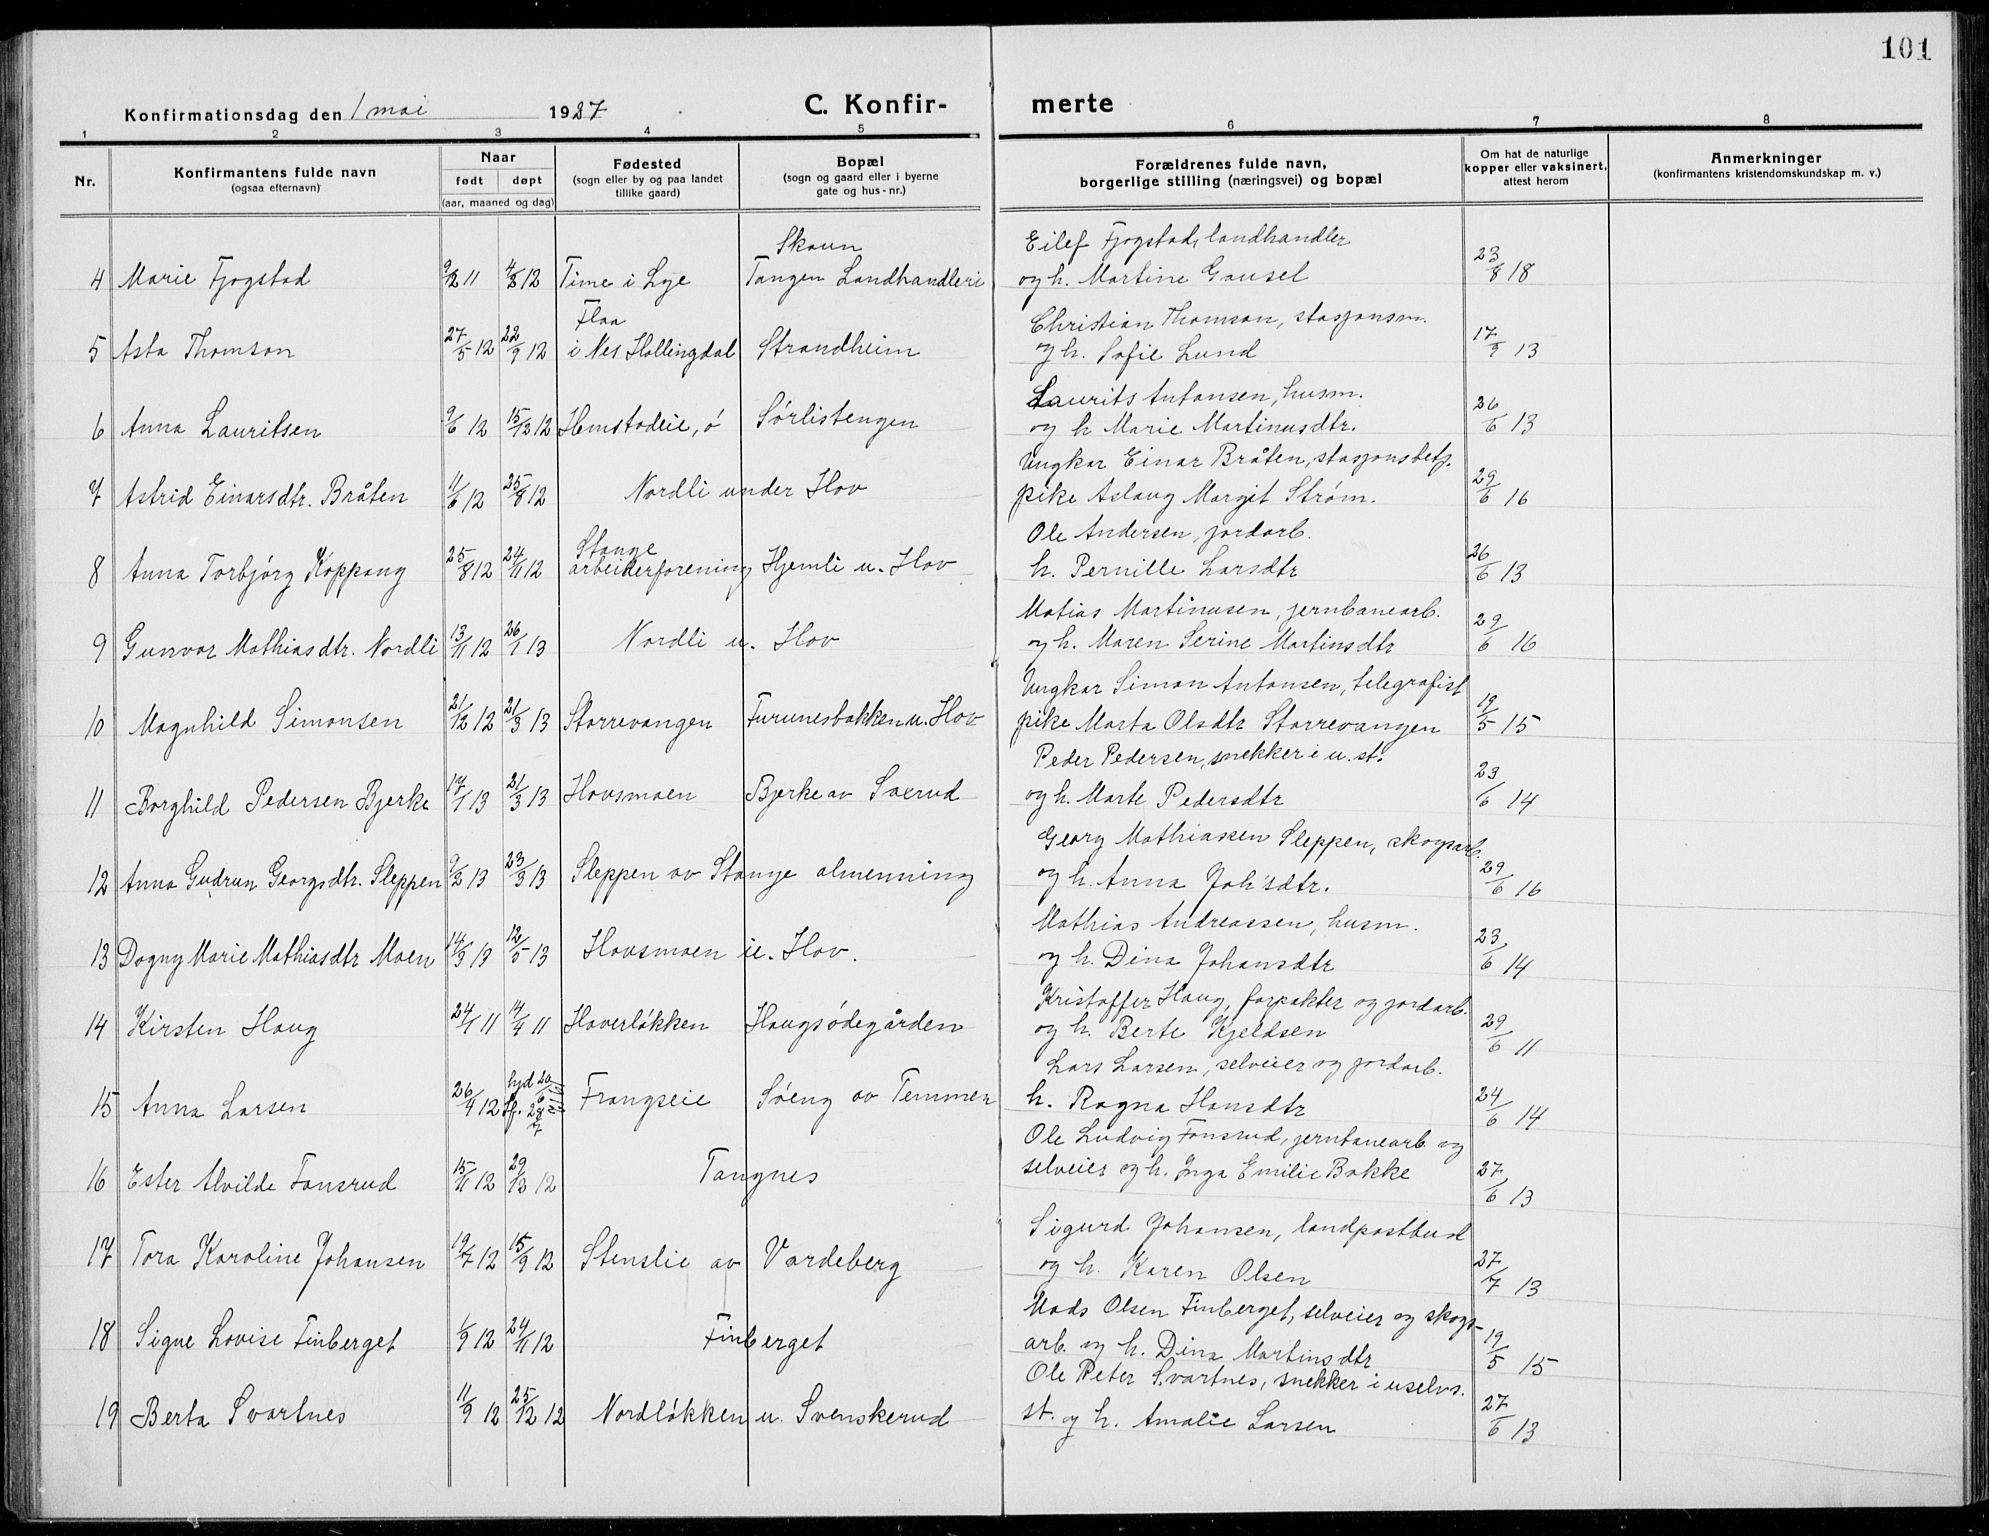 101
Konfirmationsdag den 1 mai 1927
C. Konfirmerte
1 2 3 4 5 6 7 8
Nr.
Konfirmantens fulde navn
(ogsaa efternavn)
Naar
født døpt
(aar, maaned og dag)
Fødested
(sogn eller by og paa landet
tillike gaard)
Bopæl
(sogn og gaard eller i byerne
gate og hus-nr.)
Forældrenes fulde navn,
borgerlige stilling (næringsvei) og bopæl
Om hat de naturlige
kopper eller vaksinert,
attest herom
Anmerkninger
(konfirmantens kristendomskundskap m. v.)
Skaun Eilef Fjogstad, landhandler
4 Marie Fjogstad 9/12 11 4/2 12 Time i Lye Tangen Landhandleri og h. Martine Gausel 23/8 18
Flaa Christian Thomson, stasjonsm.
5 Asta Thomson 27/5 12 22/9 12 i Nes Hallingdal Strandheim og h. Sofie Lund 17/9 13
Laurits Antonsen, husm.
6 Anna Lauritsen 9/6 12 15/12 12 Hemstadeie, ø Sørlistengen og h Marie Martinusdtr. 26/6 13
Ungkar Einar Bråten, stasjonsbetj.
7 Astrid Einarsdtr. Bråten 11/6 12 25/8 12 Nordli under Hov pike Aslaug Margit Strøm. 29/6 16
Stange Ole Andersen, jordarb.
8 Anna Torbjørg Koppang 25/8 12 24/11 12 arbeiderforening Hjemli u. Hov h. Pernille Larsdtr 26/6 13
Matias Martinusen, jernbanearb.
9 Gunvor Mathiasdtr. Nordli 13/11 12 26/1 13 Nordli u. Hov og h. Maren Serine Martinsdtr 29/6 16
Ungkar Simon Antonsen, telegrafist
10 Magnhild Simonsen 21/12 12 21/3 13 Starrevangen Furunesbakken u. Hov pike Marta Olsdtr Starrevangen 19/5 15
Peder Pedersen, snekker i u. st.
11 Borghild Pedersen Bjerke 17/1 13 21/3 13 Hovsmoen Bjerke av Saerud og h. Marte Pedersdtr 23/6 14
Georg Mathiassen Sleppen, skogsarb.
12 Anna Gudrun Georgsdtr. Sleppen 9/2 13 23/3 13 Sleppen av Stange almenning og h. Anna Joh'sdtr. 29/6 16
Mathias Andreassen, husm.
13 Dagny Marie Mathiasdtr Moen 14/3 13 12/5 13 Hovsmoen u. Hov. og h. Dina Johansdtr 23/6 14
Kristoffer Haug, forpakter og jordarb.
14 Kirsten Haug 24/1 11 14/4 11 Haverløkken Haugsødegården og h. Berte Kjeldsen 29/6 11
Lars Larsen, selveier og jordarb.
15 Anna Larsen 26/4 12 Frangseie Søeng av Temmen h. Ragna Hansdtr 24/6 14
Ole Ludvig Fonsrud, jernbanearb. og
16 Ester Alvilde Fonsrud 15/11 12 29/12 12 Tangnes selveier og h. Inga Emilie Bakke 27/6 13
Sigurd Johansen, landpostbud
17 Tora Karoline Johansen 19/7 12 15/9 12 Stenslie av Vardeberg og h. Karen Olsen 27/7 13
Mads Olsen Finberget, selveier og skogs-
18 Signe Lovise Finberget 1/9 12 24/11 12 Finberget arb. og h. Dina Martinsdtr 19/5 15
Ole Peter Svartnes, snekker i uselvs.
19 Berta Svartnes 11/9 12 25/12 12 Nordløkken u. Svenskerud st. og h. Amalie Larsen 27/6 13